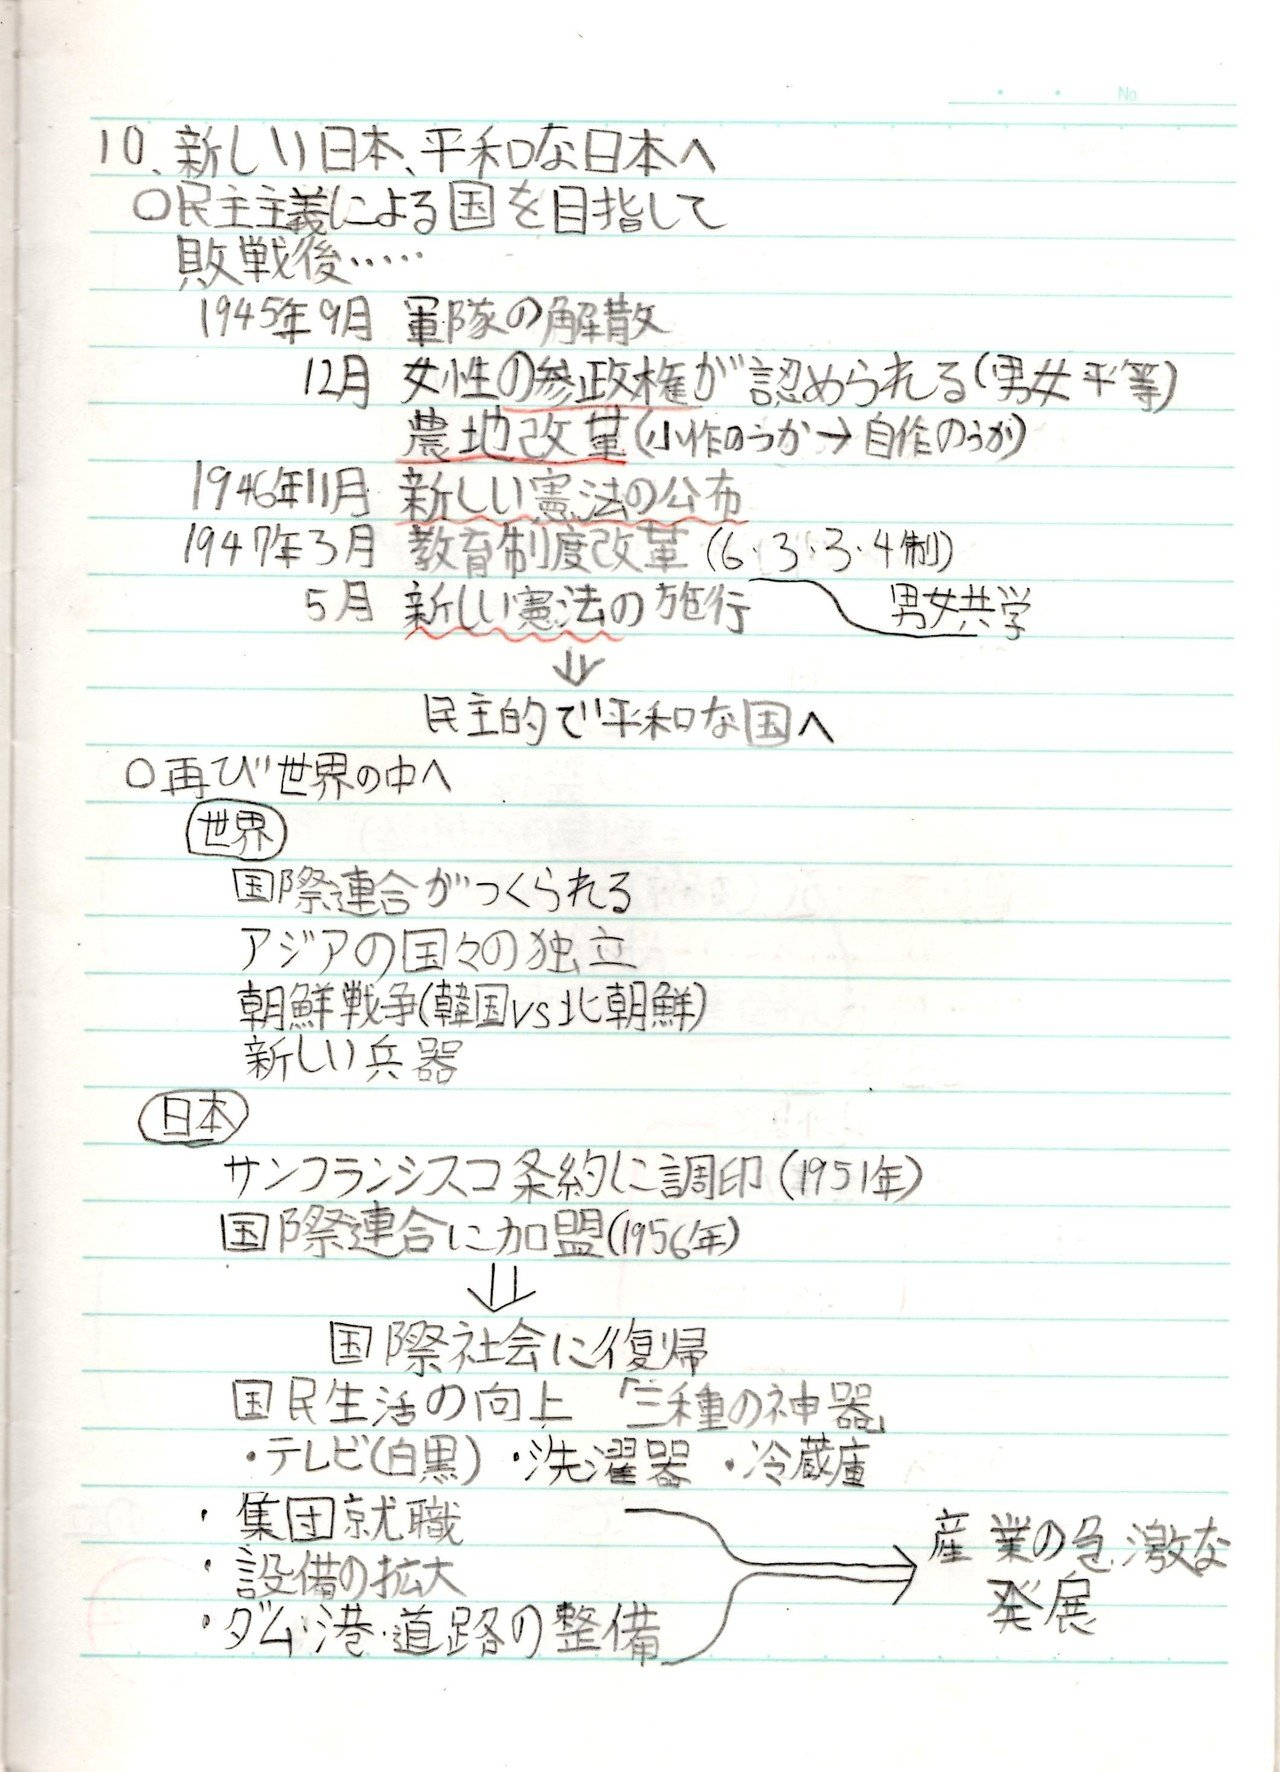 No
10、新しい日本、平和な日本へ
○民主主義による国を目指して
敗戦後……
1945年9月 軍隊の解散
12月 女性の参政権が認められる(男女平等)
農地改革(小作のうか→自作のうか)
1946年11月 新しい憲法の公布
1947年3月 教育制度改革(6・3・3・4制)
5月 新しい憲法の施行 男女共学
⇓
民主的で平和な国へ
○再び世界の中へ
世界
国際連合がつくられる
アジアの国々の独立
朝鮮戦争(韓国vs北朝鮮)
新しい兵器
日本
サンフランシスコ条約に調印(1951年)
国際連合に加盟(1956年)
⇓
国際社会に復帰
国民生活の向上 「三種の神器」
・テレビ(白黒) ・洗濯器 ・冷蔵庫
・集団就職
・設備の拡大
・ダム・港・道路の整備
産業の急激な
発展